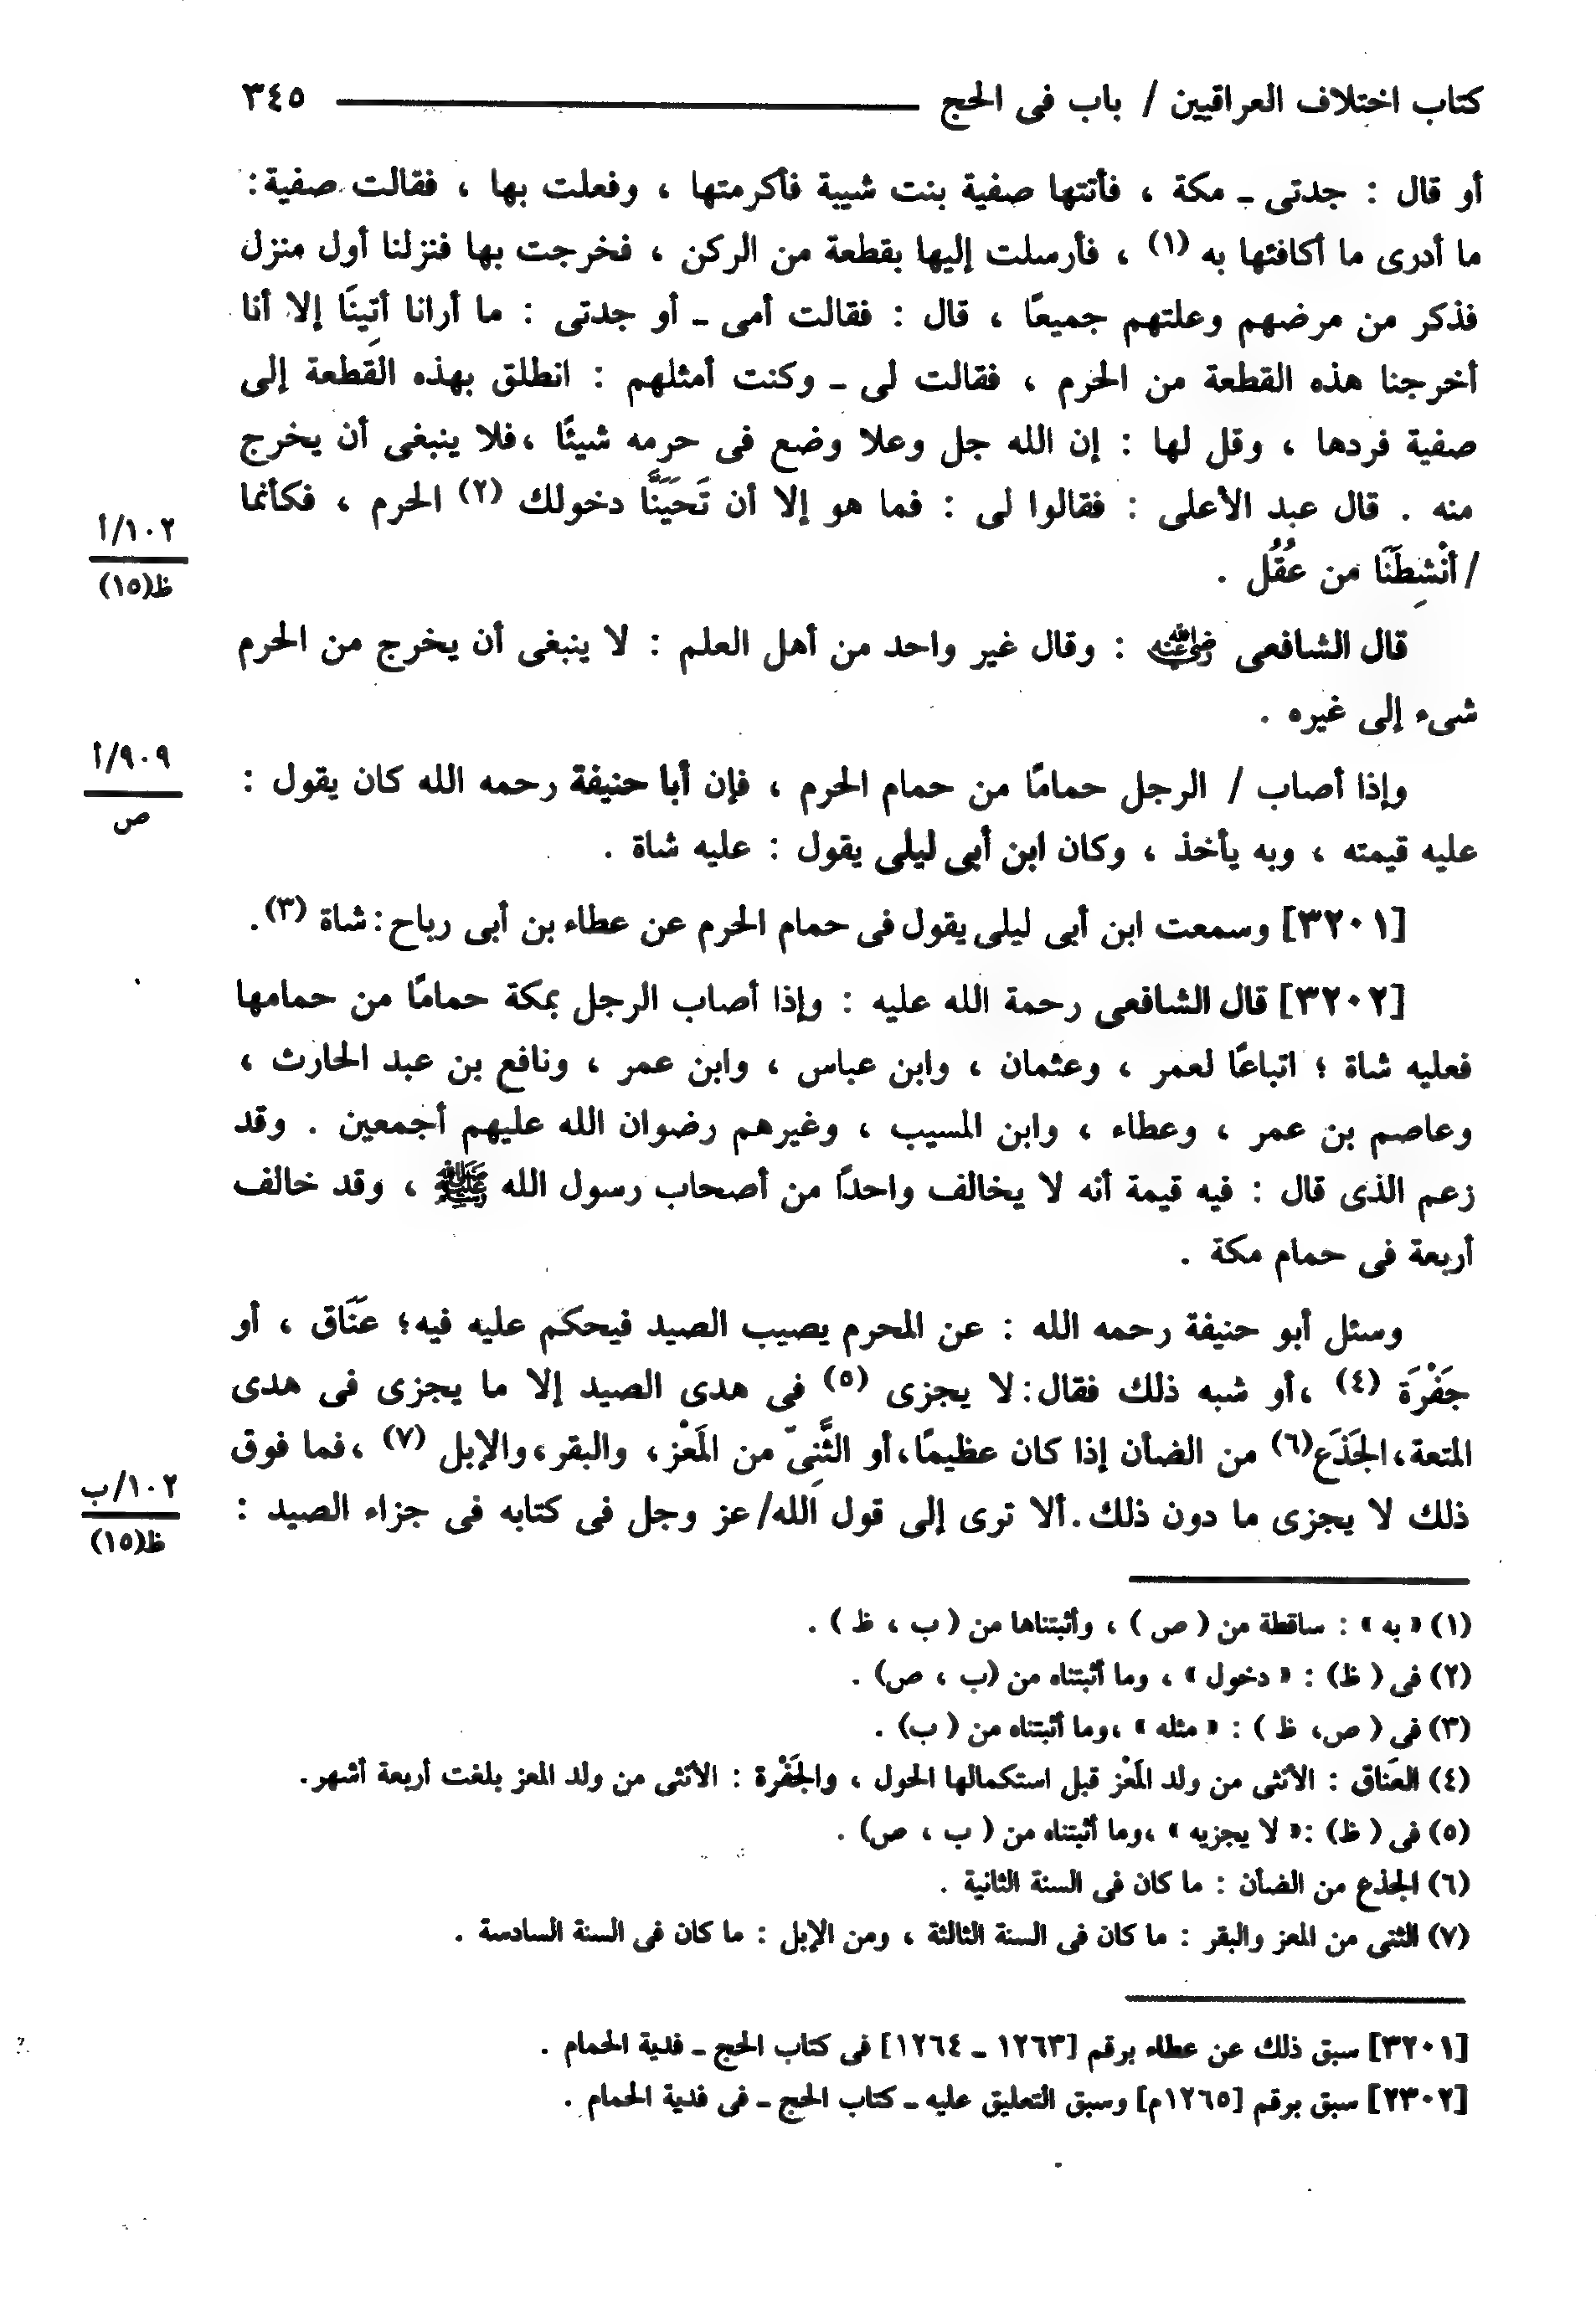 كتاب اختلاف العراقيين / باب فى الحج ــــــ ٣٤٥
أو قال : جدتى ـ مكة ، فأتتها صفية بنت شيبة فأكرمتها ، وفعلت بها ، فقالت صفية :
ما أدرى ما أكافئها به (١) ، فأرسلت إليها بقطعة من الركن ، فخرجت بها فنزلنا أول منزل
فذكر من مرضهم وعلتهم جميعًا ، قال : فقالت أمى ـ أو جدتى : ما أرانا أتِينَا إلا أنا
أخرجنا هذه القطعة من الحرم ، فقالت لى ـ وكنت أمثلهم : انطلق بهذه القطعة إلى
صفية فردها ، وقل لها : إن الله جل وعلا وضع فى حرمه شيئًا ،فلا ينبغى أن يخرج
منه . قال عبد الأعلى : فقالوا لى : فما هو إلا أن تَحَيَنَّا دخولك (٢) الحرم ، فكأنما
١٠٢/أ
ظ(١٥)
/ أنْشِطَنَا من عُقُل .
قال الشافعى رضي الله عنه : وقال غير واحد من أهل العلم : لا ينبغى أن يخرج من الحرم
شىء إلى غيره .
٩٠٩/أ
ص
وإذا أصاب / الرجل حمامًا من حمام الحرم ، فإن أبا حنيفة رحمه الله كان يقول :
عليه قيمته ، وبه يأخذ ، وكان ابن أبى ليلى يقول : عليه شاة .
[٣٢٠١] وسمعت ابن أبى ليلى يقول فى حمام الحرم عن عطاء بن أبى رباح : شاة (٣) .
[٣٢٠٢] قال الشافعى رحمة الله عليه : وإذا أصاب الرجل بمكة حمامًا من حمامها
فعليه شاة ؛ اتباعًا لعمر ، وعثمان ، وابن عباس ، وابن عمر ، ونافع بن عبد الحارث ،
وعاصم بن عمر ، وعطاء ، وابن المسيب ، وغيرهم رضوان الله عليهم أجمعين . وقد
زعم الذى قال : فيه قيمة أنه لا يخالف واحدًا من أصحاب رسول الله ﷺ ، وقد خالف
أربعة فى حمام مكة .
وسئل أبو حنيفة رحمه الله : عن المحرم يصيب الصيد فيحكم عليه فيه؛ عَنَاق ، أو
جَفْرَة (٤) ،أو شبه ذلك فقال: لا يجزى (٥) فى هدى الصيد إلا ما يجزى فى هدى
المتعة،الجَذَع(٦) من الضأن إذا كان عظيمًا،أو الثَّنِىّ من المَعْز، والبقر،والإبل (٧) ،فما فوق
١٠٢/ب
ظ(١٥)
ذلك لا يجزى ما دون ذلك. ألا ترى إلى قول الله/ عز وجل فى كتابه فى جزاء الصيد :
(١) « به » : ساقطة من ( ص ) ، وأثبتناها من ( ب ، ظ ) .
(٢) فى ( ظ) : « دخول » ، وما أثبتناه من (ب ، ص) .
(٣) فى ( ص، ظ ) : « مثله » ،وما أثبتناه من ( ب) .
(٤) العَناق : الأنثى من ولد المَعْز قبل استكمالها الحول ، والجَفْرة : الأنثى من ولد المعز بلغت أربعة أشهر.
(٥) فى ( ظ) :« لا يجزيه » ،وما أثبتناه من ( ب ، ص) .
(٦) الجذع من الضأن : ما كان فى السنة الثانية .
(٧) الثنى من المعز والبقر : ما كان فى السنة الثالثة ، ومن الإبل : ما كان فى السنة السادسة .
[٣٢٠١] سبق ذلك عن عطاء برقم [١٢٦٣ ـ ١٢٦٤] فى كتاب الحج ـ فدية الحمام .
[٢٣٠٢] سبق برقم [١٢٦٥م] وسبق التعليق عليه ـ كتاب الحج ـ فى فدية الحمام .